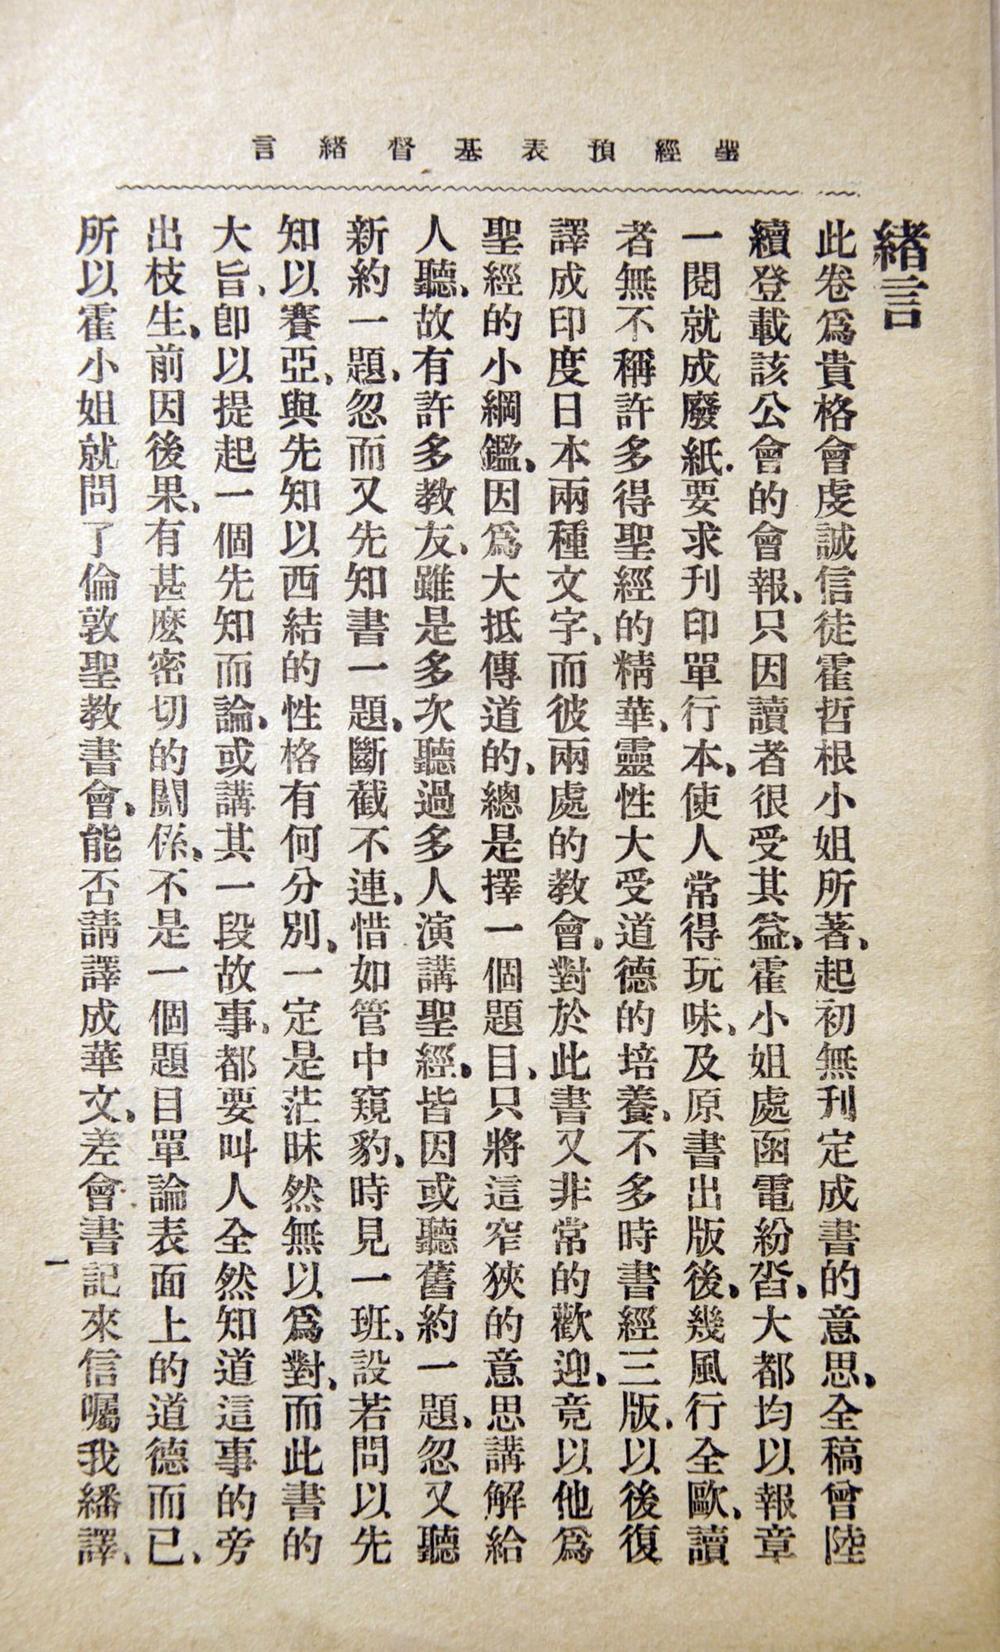 聖經預表基督緒言
緒言
此卷爲貴格會虔誠信徒霍哲根小姐所著、起初無刊定成書的意思、全稿曾陸
續登載該公會的會報、只因讀者很受其益、霍小姐處函電紛沓、大都均以報章
一閱就成廢紙．要求刊印單行本、使人常得玩味、及原書出版後、幾風行全歐、讀
者無不稱許多得聖經的精華、靈性大受道德的培養、不多時書經三版、以後復
譯成印度日本兩種文字、而彼兩處的教會、對於此書又非常的歡迎、竟以他爲
聖經的小綱鑑、因爲大抵傳道的、總是擇一個題目、只將這窄狹的意思講解給
人聽、故有許多教友、雖是多次聽過多人演講聖經、皆因或聽舊約一題、忽又聽
新約一題、忽而又先知書一題、斷截不連、惜如管中窺豹、時見一班、設若問以先
知以賽亞、與先知以西結的性格有何分別、一定是茫昧然無以爲對、而此書的
大旨、卽以提起一個先知而論、或講其一段故事、都要叫人全然知道這事的旁
出枝生、前因後果、有甚麽密切的關係、不是一個題目單論表面上的道德而已、
所以霍小姐就問了倫敦聖教書會、能否請譯成華文、差會書記來信囑我繙譯、
一